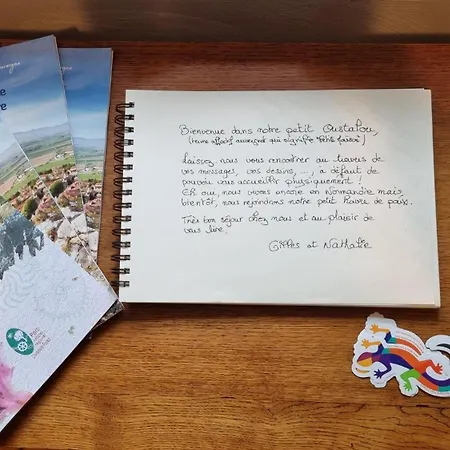 Bienvenue dans notre petit Oustalou,
(terme affectif auvergnat qui signifie "Petite maison")
Laissez nous vous rencontrer au travers de
vos messages, vos dessins, ..., à défaut de
pouvoir vous accueillir physiquement !
Eh oui, nous vivons encore en Normandie mais,
bientôt, nous rejoindrons notre petit havre de paix.
Très bon séjour chez nous et au plaisir de
vous lire.
Gilles et Nathalie